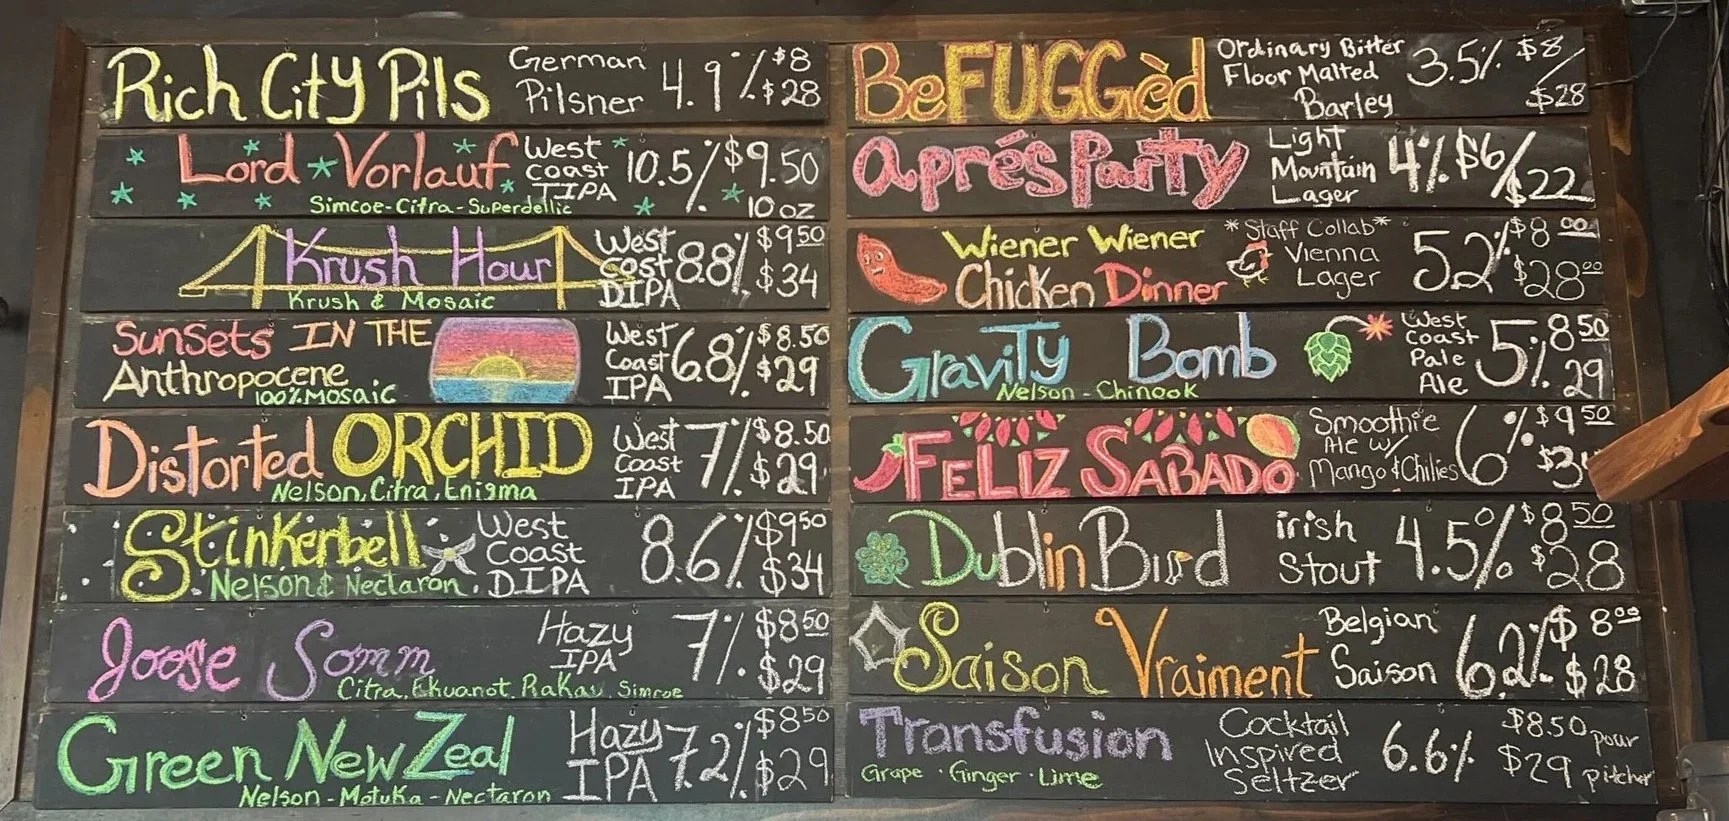 Rich City Pils
German
Pilsner
4.9%
$8
$28
Lord Vorlauf
West
Coast
TIPA
10.5%
$9.50
10 oz
Simcoe-Citra-Superdellic
Krush Hour
West
Cost
DIPA
8.8%
$950
$34
Krush & Mosaic
Sunsets IN THE
Anthropocene
100% Mosaic
West
Coast
IPA
6.8%
$8.50
$29
Distorted ORCHID
West
Coast
IPA
7%
$8.50
$29
Nelson, Citra, Enigma
Stinkerbell
West
Coast
DIPA
8.6%
$950
$34
Nelson & Nectaron
Joose Somm
Hazy
IPA
7%
$850
$29
Citra, Ekuanot, Rakau, Simcoe
Green New Zeal
Hazy
IPA
7.2%
$850
$29
Nelson - Motuka - Nectaron
BeFUGGèd
Ordinary Bitter
Floor Malted
Barley
3.5%
$8
$28
aprés Party
Light
Mountain
Lager
4%
$6
$22
Wiener Wiener
Chicken Dinner
*Staff Collab*
Vienna
Lager
5.2%
$800
$2800
Gravity Bomb
West
Coast
Pale
Ale
5%
850
29
Nelson - Chinook
FELIZ SABADO
Smoothie
Ale w/
Mango & Chilies
6%
$950
Dublin Bird
irish
Stout
4.5%
$850
$28
Saison Vraiment
Belgian
Saison
6.2%
$800
$28
Transfusion
Cocktail
Inspired
Seltzer
6.6%
$8.50 pour
$29 pitcher
Grape · Ginger · Lime